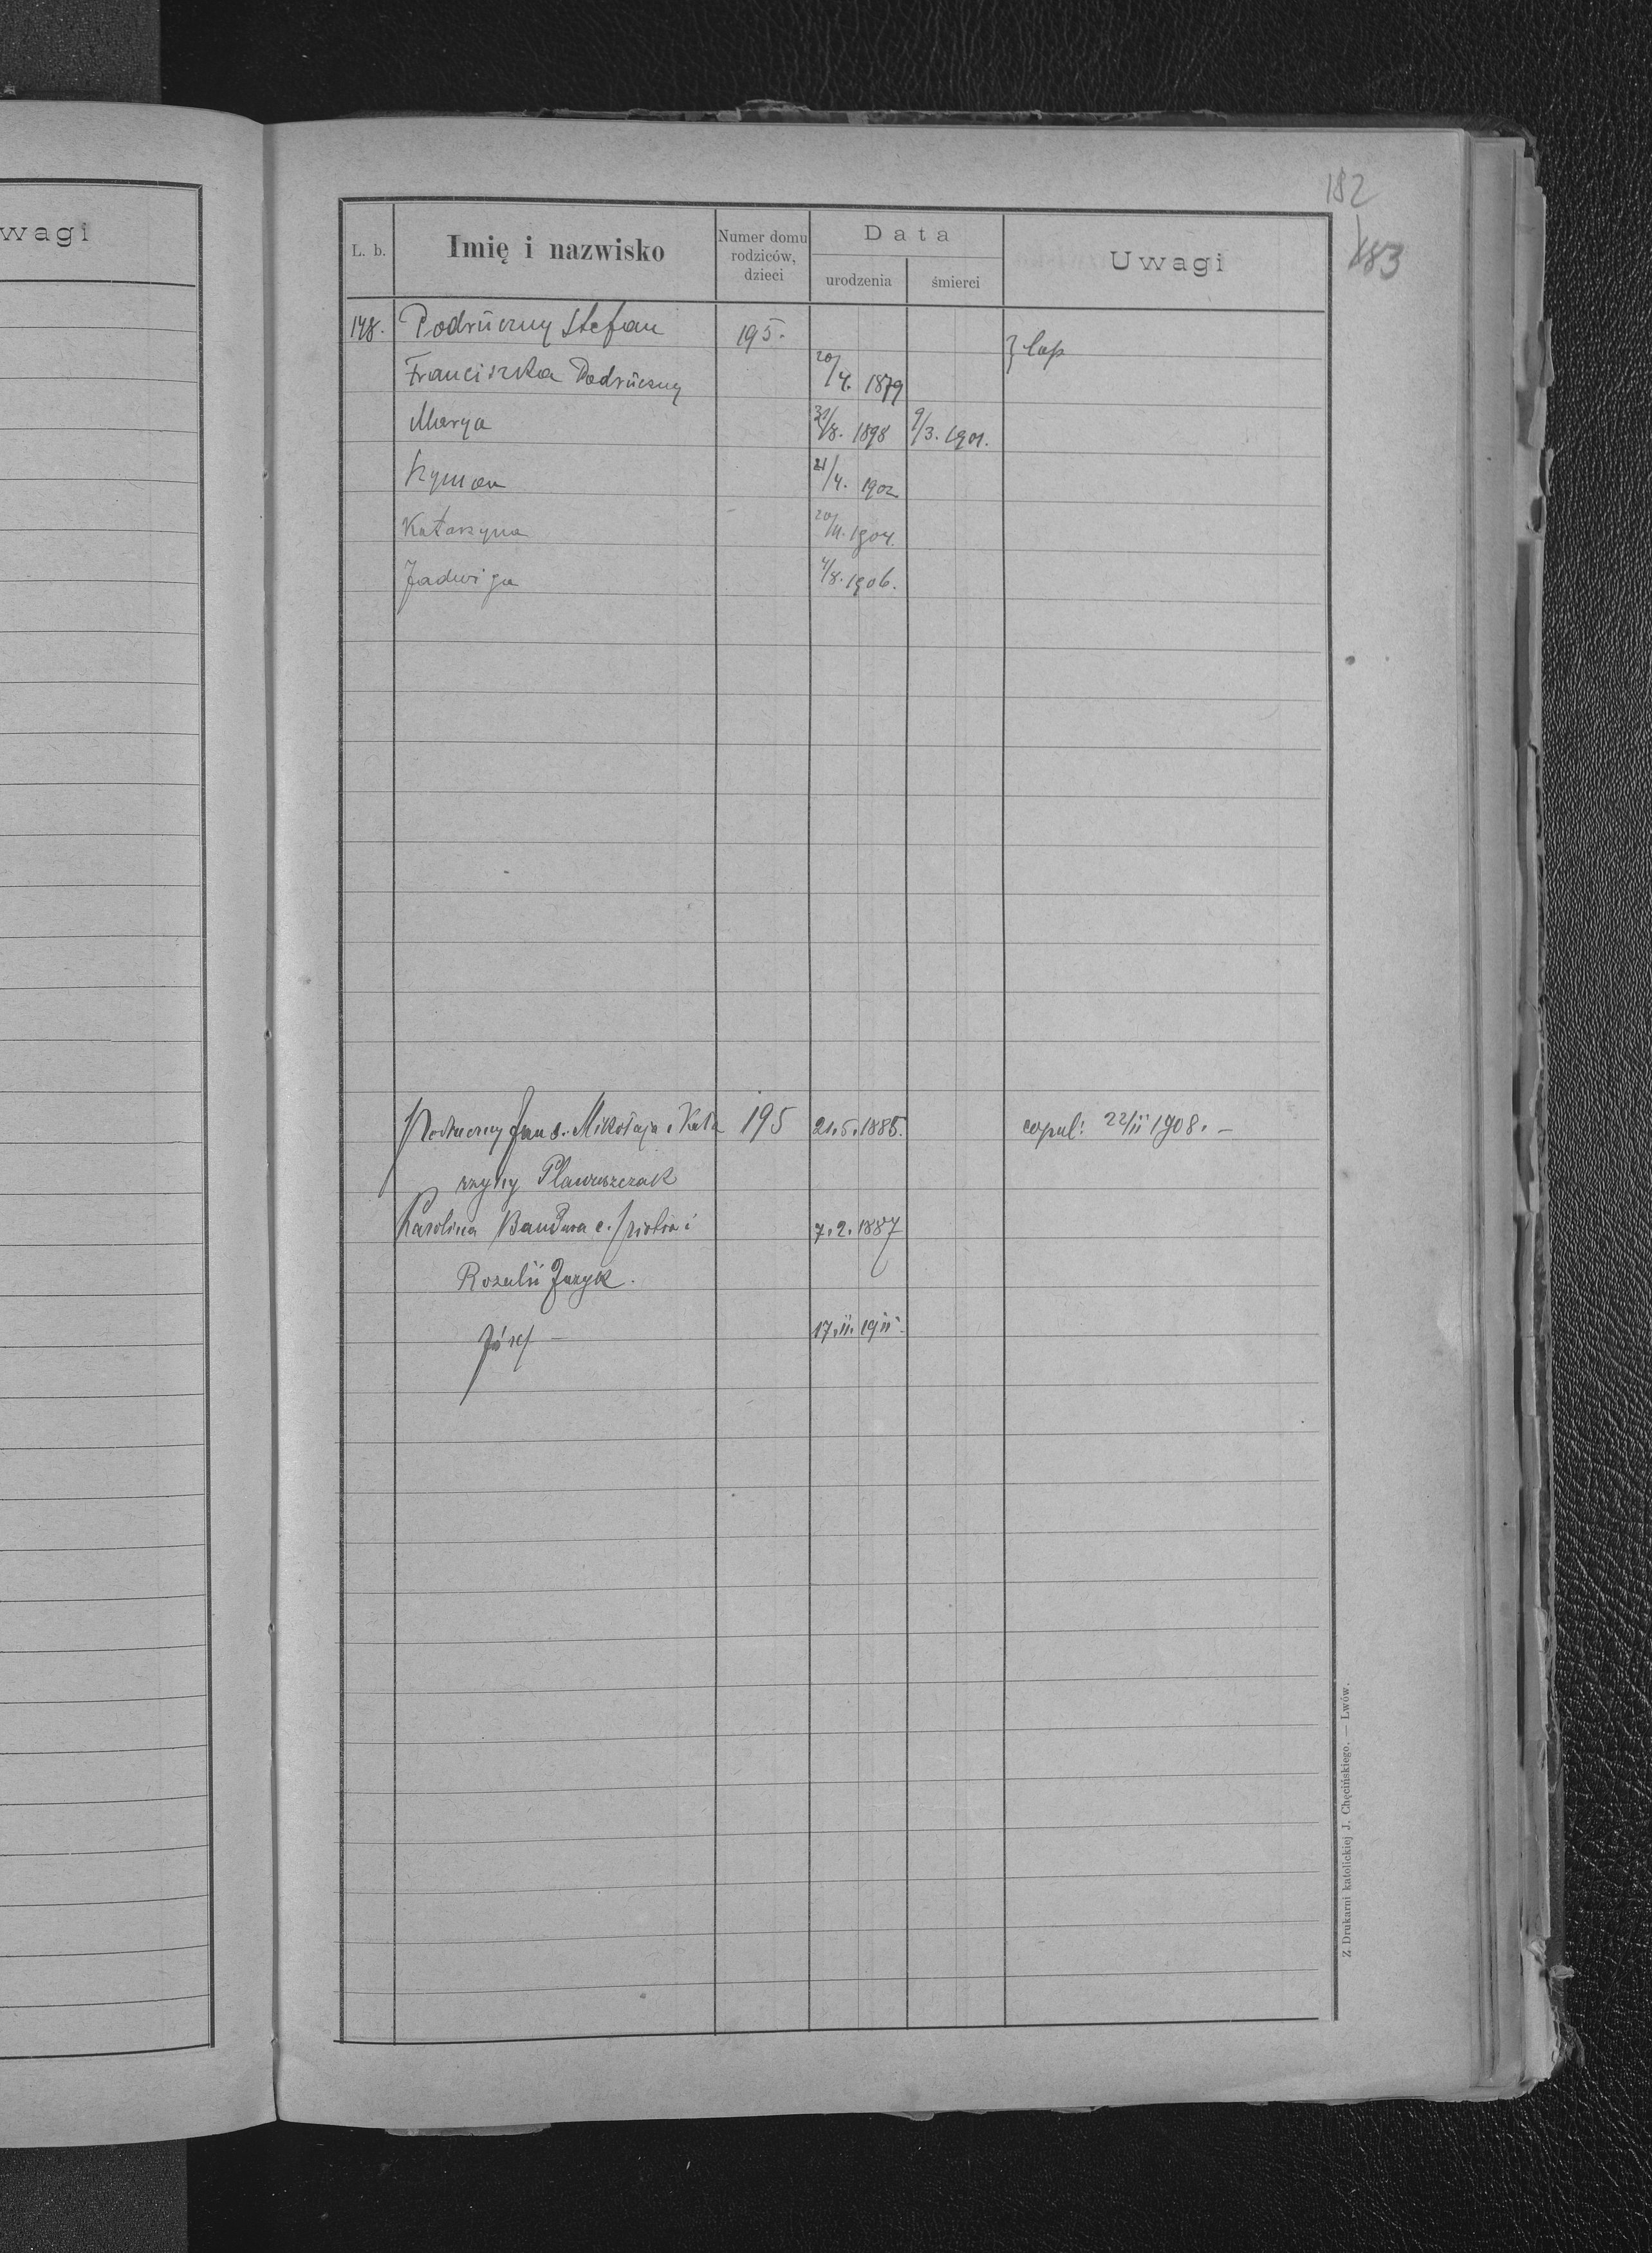 wagi
182
183
L. b.
Imię i nazwisko
Numer domu rodziców, dzieci
Data
urodzenia
śmierci
Uwagi
148. Podrúczny Stefan 195.
Franciszka Podrúczny 20/4. 1879
Marya 31/8. 1898 9/3. 1901.
Szymon 21/4. 1902
Katarzyna 20/11. 1904.
Jadwiga 4/8. 1906.
Podruczny Jan s. Mikołaja i Kata 195 21.5.1885. copul: 22/11 1908. –
rzyny
Karolina Bandura c. i 7.2.1887
Rozalii Jazyk.
Józef – 17.11.1911.
Z Drukarni katolickiej J. Chęcińskiego. — Lwów.